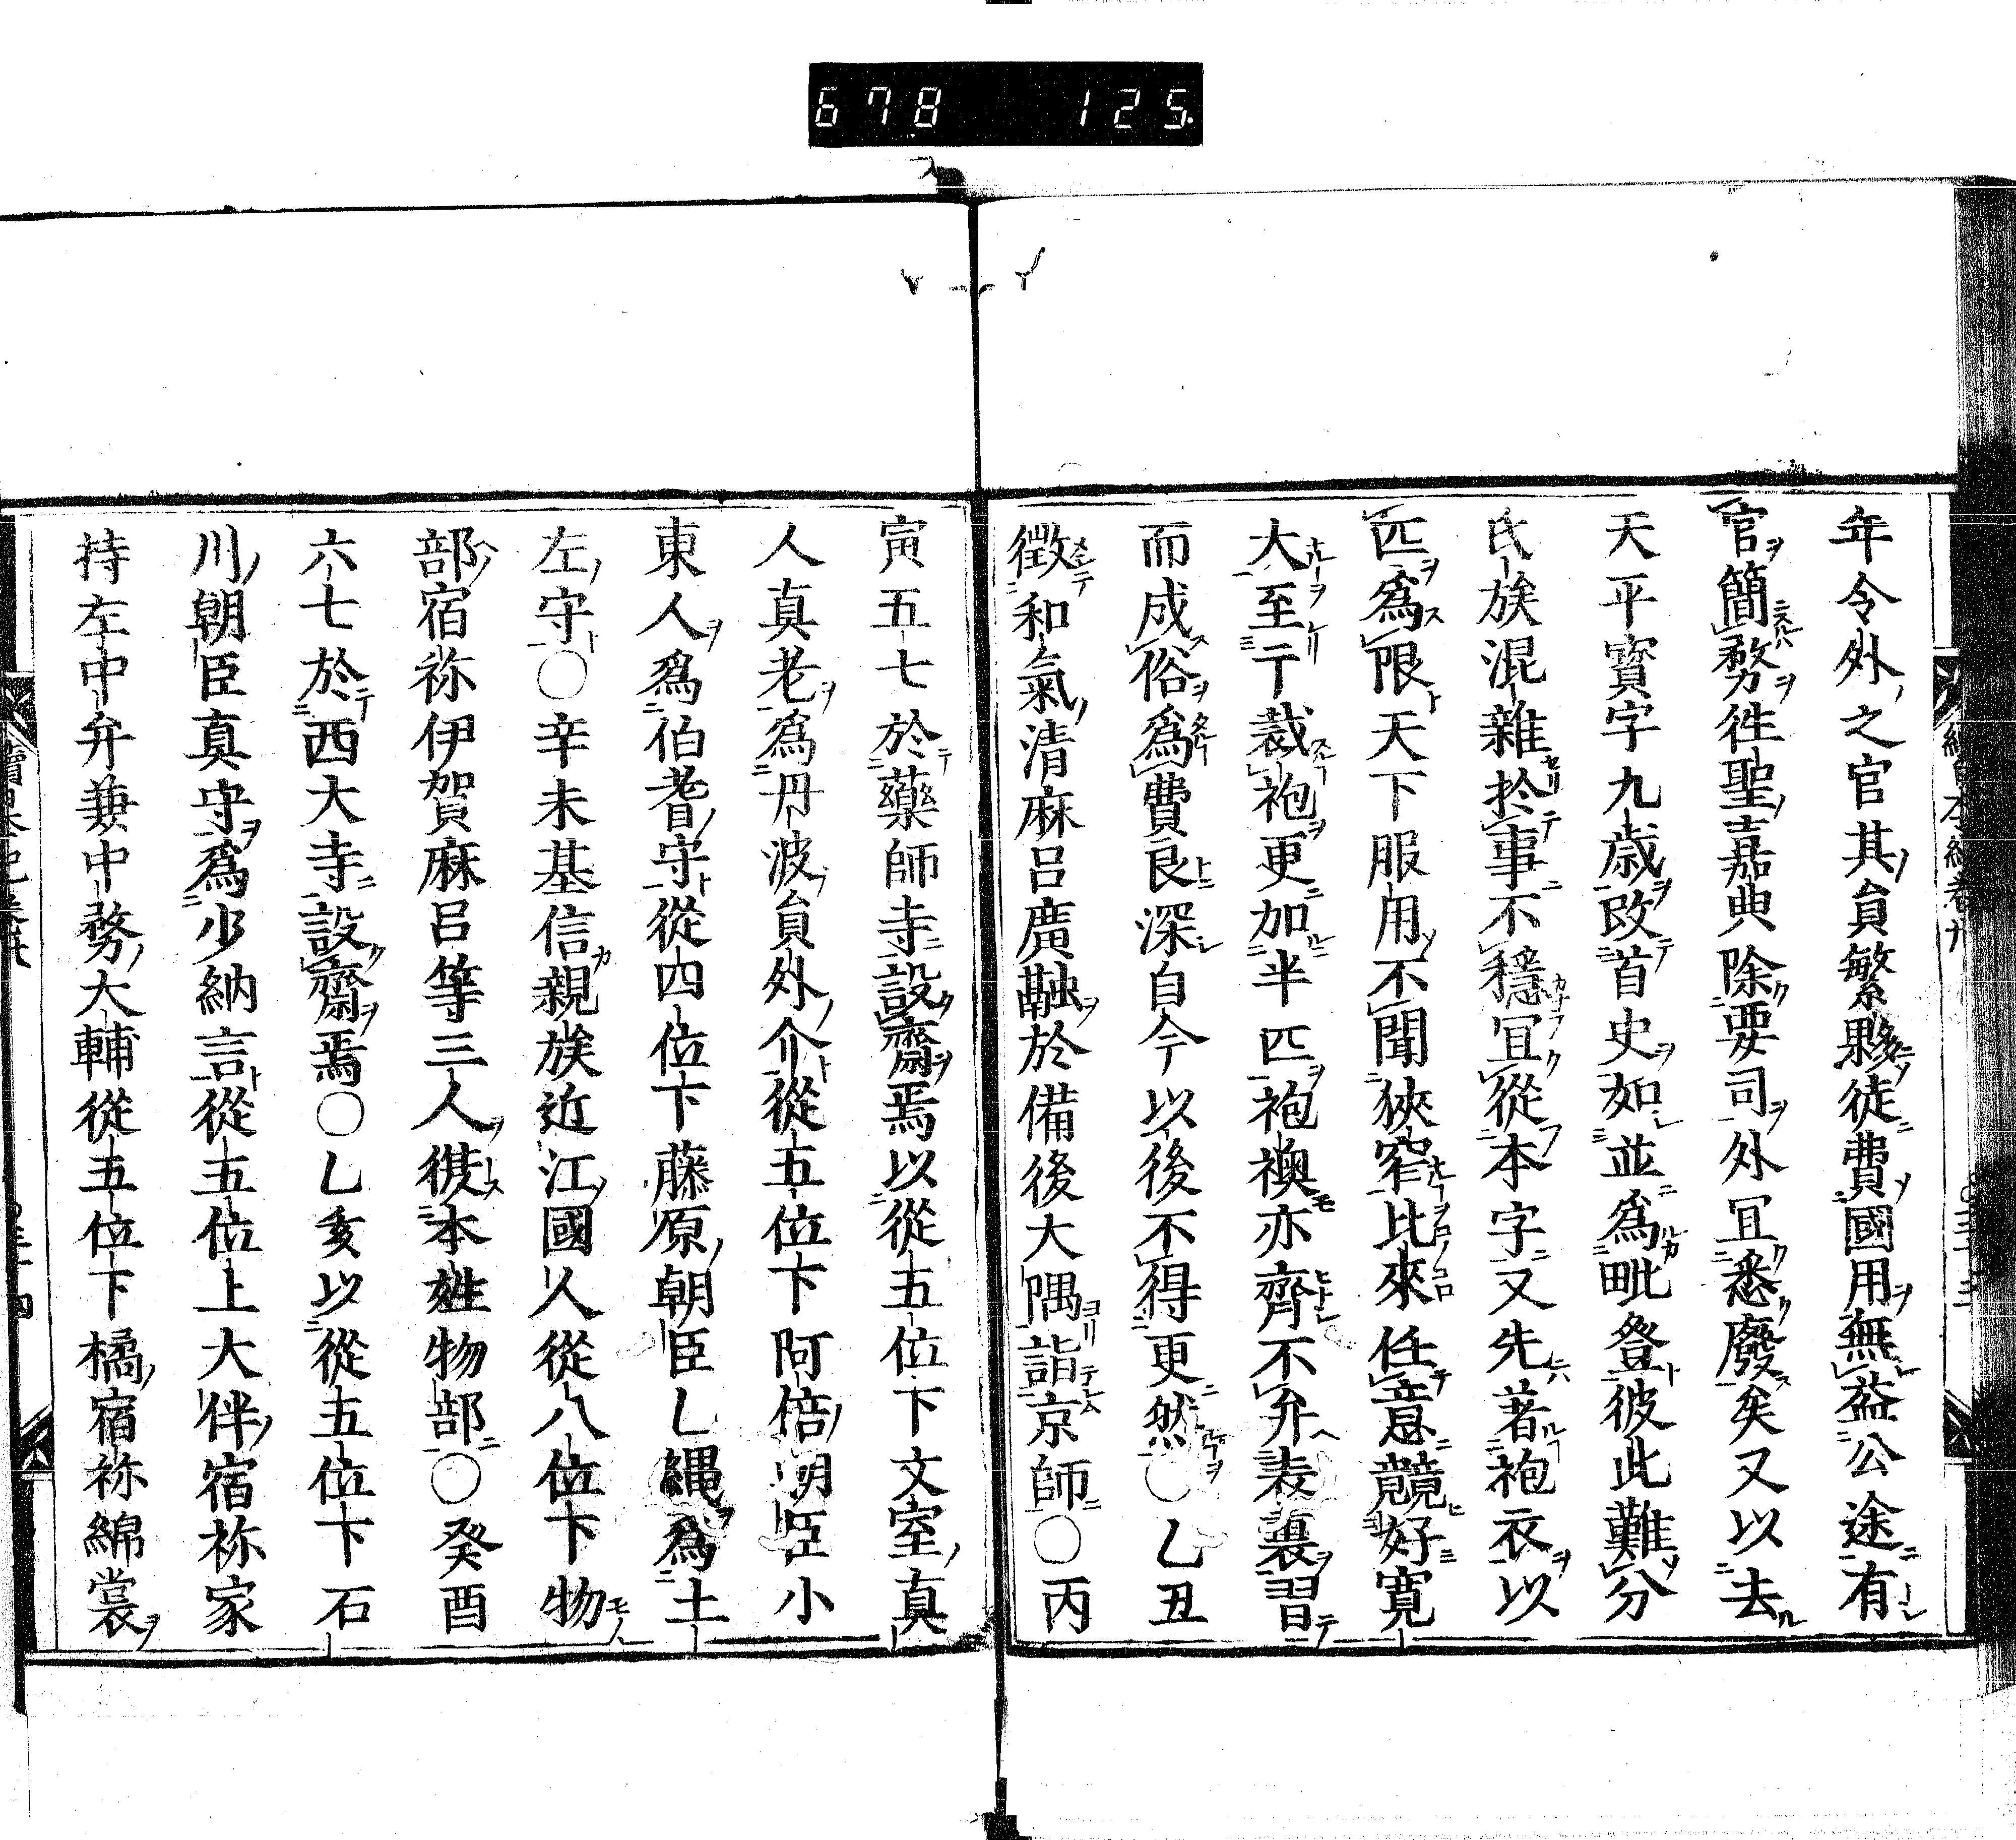 678 125
年令外之官其員繁夥徒費國用無益公途有
官簡務徃聖嘉典除要司外冝悉廢矣又以去
天平寳字九歳改首史如並爲毗登彼此難分
氏族混雜於事不穏冝從本字又先著袍衣以
匹爲限天下服用不聞狹窄比來任意競好寛
大至于裁袍更加半匹袍襖亦齊不弁表裏習
而成俗爲費良深自今以後不得更然○乙丑
徴和氣清麻呂廣融於備後大隅詣京師○丙
寅五七於藥師寺設齋焉以從五位下文室真
人真老爲丹波員外介從五位下阿倍朝臣小
東人爲伯耆守從四位下藤原朝臣乙縄爲土
左守○辛未基信親族近江國人從八位下物
部宿祢伊賀麻呂等三人復本姓物部○癸酉
六七於西大寺設齋焉○乙亥以從五位下石
川朝臣真守爲少納言從五位上大伴宿祢家
持左中弁兼中務大輔從五位下橘宿祢綿裳